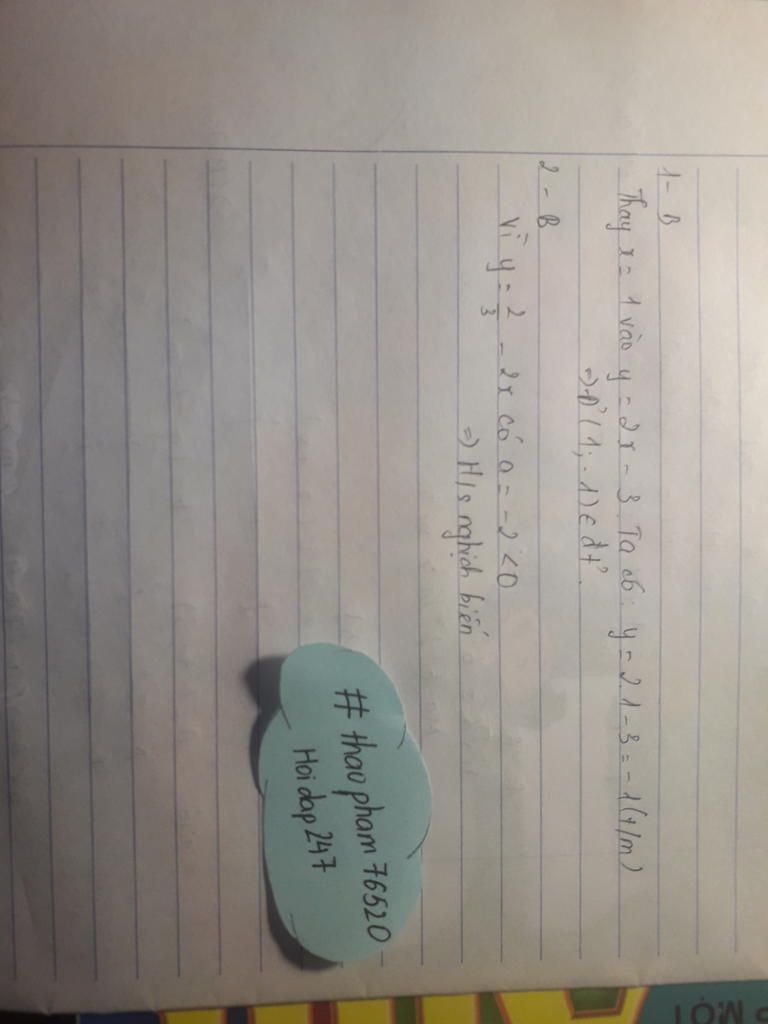 1 - B
Thay x = 1 vào y = 2x - 3. Ta có: y = 2.1 - 3 = -1 (t/m)
=> Đ' (1; -1) ∈ đt'.
2 - B
Vì y = 2/3 - 2x có a = -2 < 0
=> H/s nghịch biến
# thaopham76520
Hoidap247
MỘT